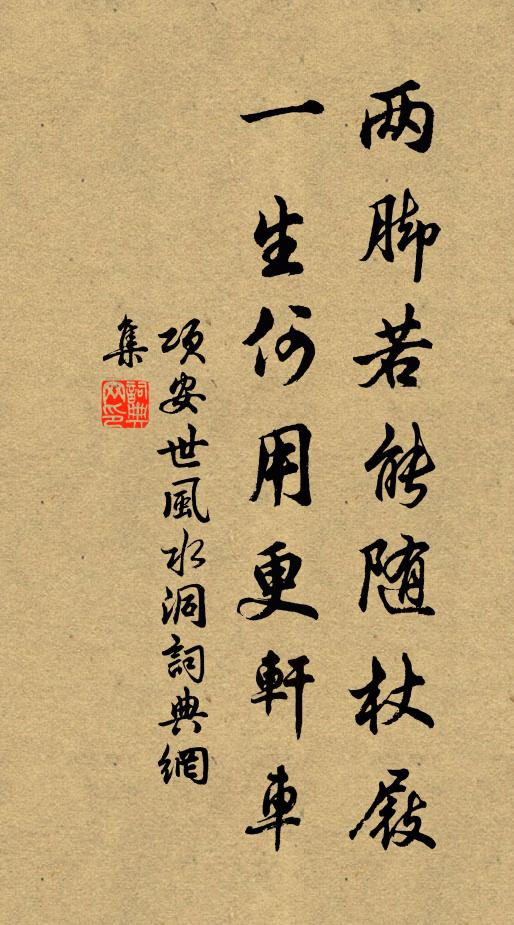 两脚若能随杖屐
一生何用更軒車
項安世風水洞詞典網
集
詞典网印